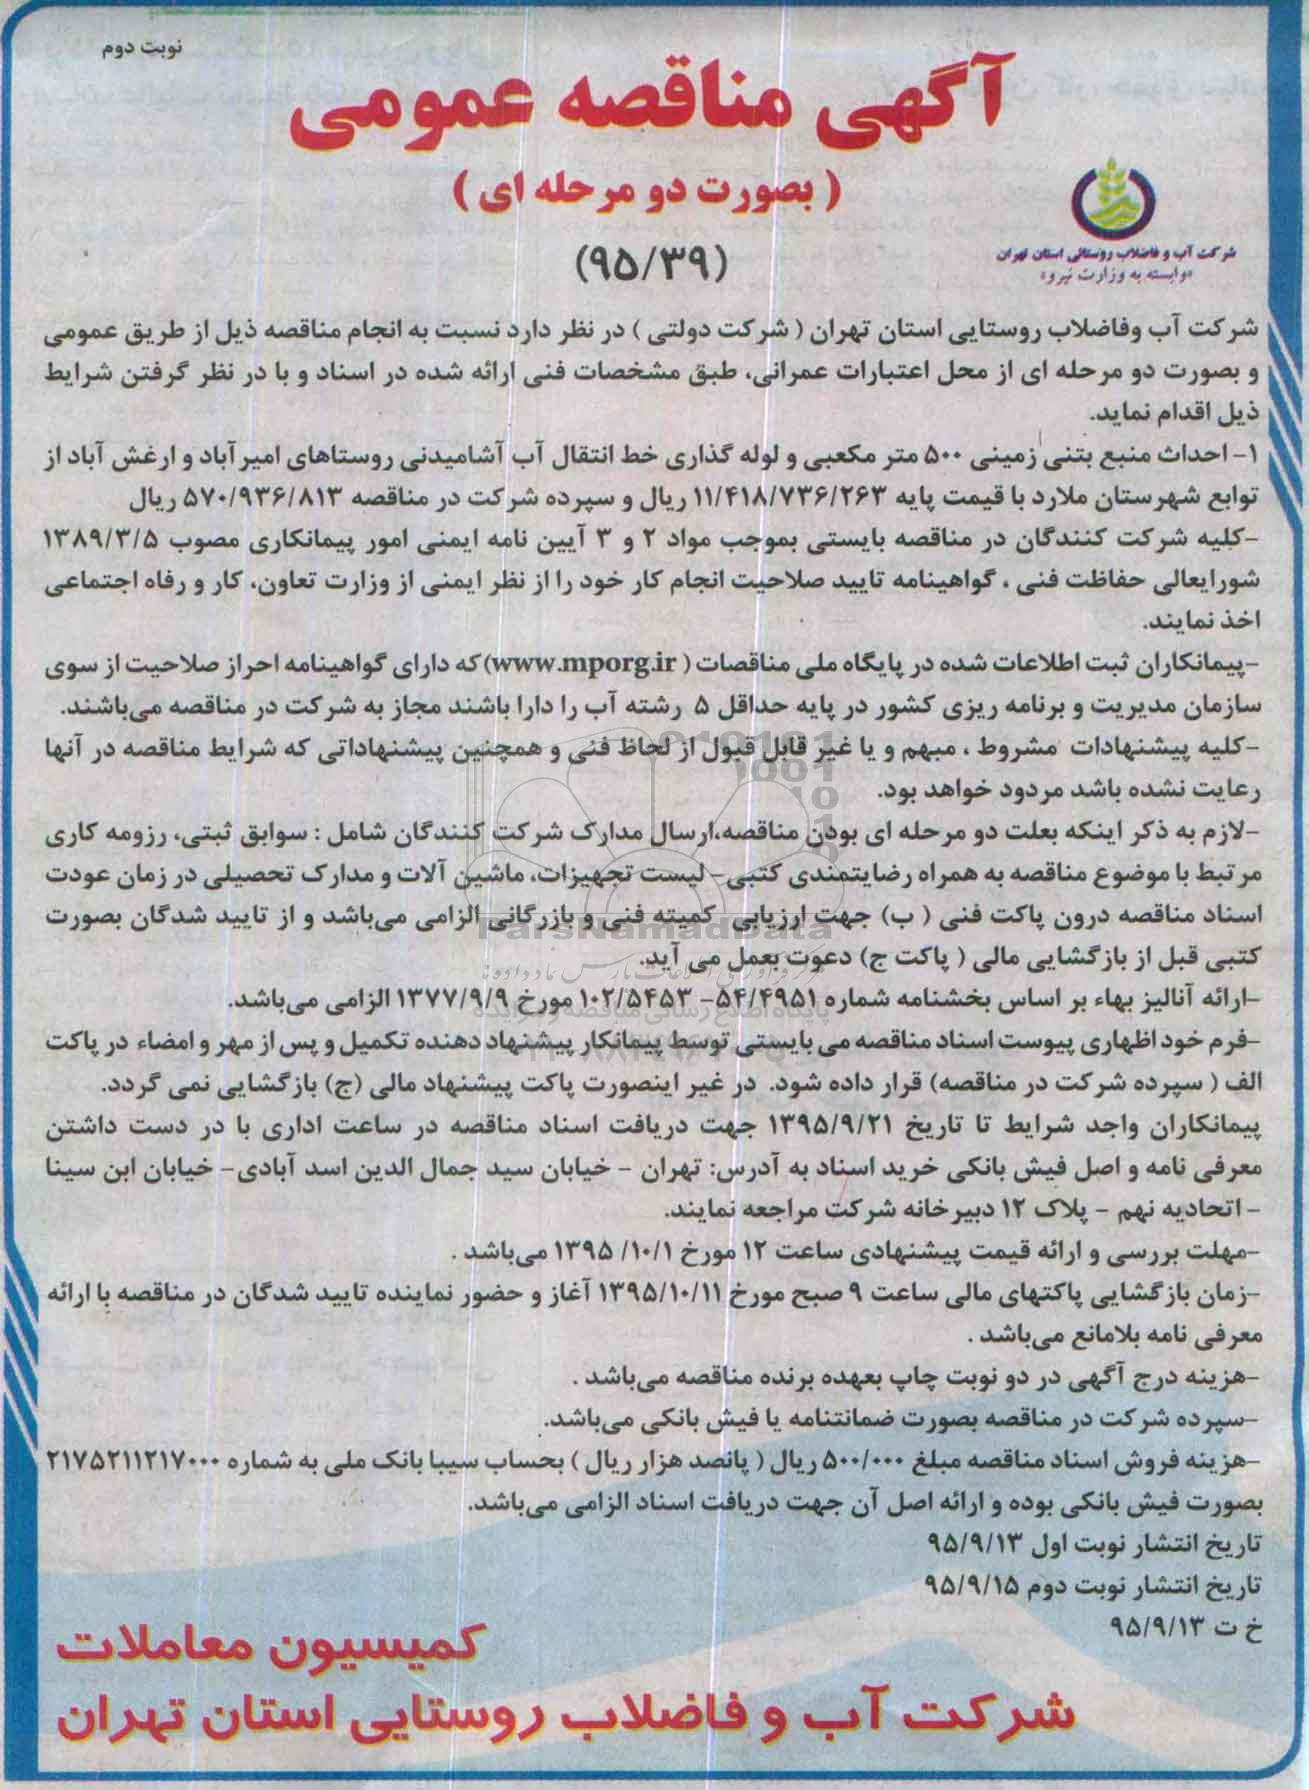 نوبت دوم
آگهی مناقصه عمومی
( بصورت دو مرحله ای )
(۹۵/۳۹)
شرکت آب و فاضلاب روستائی استان تهران
«وابسته به وزارت نیرو»
شرکت آب وفاضلاب روستایی استان تهران ( شرکت دولتی ) در نظر دارد نسبت به انجام مناقصه ذیل از طریق عمومی
و بصورت دو مرحله ای از محل اعتبارات عمرانی، طبق مشخصات فنی ارائه شده در اسناد و با در نظر گرفتن شرایط
ذیل اقدام نماید.
۱- احداث منبع بتنی زمینی ۵۰۰ متر مکعبی و لوله گذاری خط انتقال آب آشامیدنی روستاهای امیرآباد و ارغش آباد از
توابع شهرستان ملارد با قیمت پایه ۱۱/۴۱۸/۷۳۶/۲۶۳ ریال و سپرده شرکت در مناقصه ۵۷۰/۹۳۶/۸۱۳ ریال
-کلیه شرکت کنندگان در مناقصه بایستی بموجب مواد ۲ و ۳ آیین نامه ایمنی امور پیمانکاری مصوب ۱۳۸۹/۳/۵
شورایعالی حفاظت فنی ، گواهینامه تایید صلاحیت انجام کار خود را از نظر ایمنی از وزارت تعاون، کار و رفاه اجتماعی
اخذ نمایند.
-پیمانکاران ثبت اطلاعات شده در پایگاه ملی مناقصات ( www.mporg.ir) که دارای گواهینامه احراز صلاحیت از سوی
سازمان مدیریت و برنامه ریزی کشور در پایه حداقل ۵ رشته آب را دارا باشند مجاز به شرکت در مناقصه می‌باشند.
-کلیه پیشنهادات مشروط ، مبهم و یا غیر قابل قبول از لحاظ فنی و همچنین پیشنهاداتی که شرایط مناقصه در آنها
رعایت نشده باشد مردود خواهد بود.
-لازم به ذکر اینکه بعلت دو مرحله ای بودن مناقصه،ارسال مدارک شرکت کنندگان شامل : سوابق ثبتی، رزومه کاری
مرتبط با موضوع مناقصه به همراه رضایتمندی کتبی- لیست تجهیزات، ماشین آلات و مدارک تحصیلی در زمان عودت
اسناد مناقصه درون پاکت فنی ( ب) جهت ارزیابی کمیته فنی و بازرگانی الزامی می‌باشد و از تایید شدگان بصورت
کتبی قبل از بازگشایی مالی ( پاکت ج) دعوت بعمل می آید.
-ارائه آنالیز بهاء بر اساس بخشنامه شماره ۵۴/۴۹۵۱- ۱۰۲/۵۴۵۳ مورخ ۱۳۷۷/۹/۹ الزامی می‌باشد.
-فرم خود اظهاری پیوست اسناد مناقصه می بایستی توسط پیمانکار پیشنهاد دهنده تکمیل و پس از مهر و امضاء در پاکت
الف ( سپرده شرکت در مناقصه) قرار داده شود. در غیر اینصورت پاکت پیشنهاد مالی (ج) بازگشایی نمی گردد.
پیمانکاران واجد شرایط تا تاریخ ۱۳۹۵/۹/۲۱ جهت دریافت اسناد مناقصه در ساعت اداری با در دست داشتن
معرفی نامه و اصل فیش بانکی خرید اسناد به آدرس: تهران - خیابان سید جمال الدین اسد آبادی- خیابان ابن سینا
- اتحادیه نهم - پلاک ۱۲ دبیرخانه شرکت مراجعه نمایند.
-مهلت بررسی و ارائه قیمت پیشنهادی ساعت ۱۲ مورخ ۱۳۹۵ /۱۰/۱ می‌باشد .
-زمان بازگشایی پاکتهای مالی ساعت ۹ صبح مورخ ۱۳۹۵/۱۰/۱۱ آغاز و حضور نماینده تایید شدگان در مناقصه با ارائه
معرفی نامه بلامانع می‌باشد .
-هزینه درج آگهی در دو نوبت چاپ بعهده برنده مناقصه می‌باشد .
-سپرده شرکت در مناقصه بصورت ضمانتنامه یا فیش بانکی می‌باشد.
-هزینه فروش اسناد مناقصه مبلغ ۵۰۰/۰۰۰ ریال ( پانصد هزار ریال ) بحساب سیبا بانک ملی به شماره ۲۱۷۵۲۱۱۲۱۷۰۰۰
بصورت فیش بانکی بوده و ارائه اصل آن جهت دریافت اسناد الزامی می‌باشد.
تاریخ انتشار نوبت اول ۹۵/۹/۱۳
تاریخ انتشار نوبت دوم ۹۵/۹/۱۵
خ ت ۹۵/۹/۱۳
کمیسیون معاملات
شرکت آب و فاضلاب روستایی استان تهران
ParsNamadData
پایگاه اطلاع رسانی مناقصه و مزایده